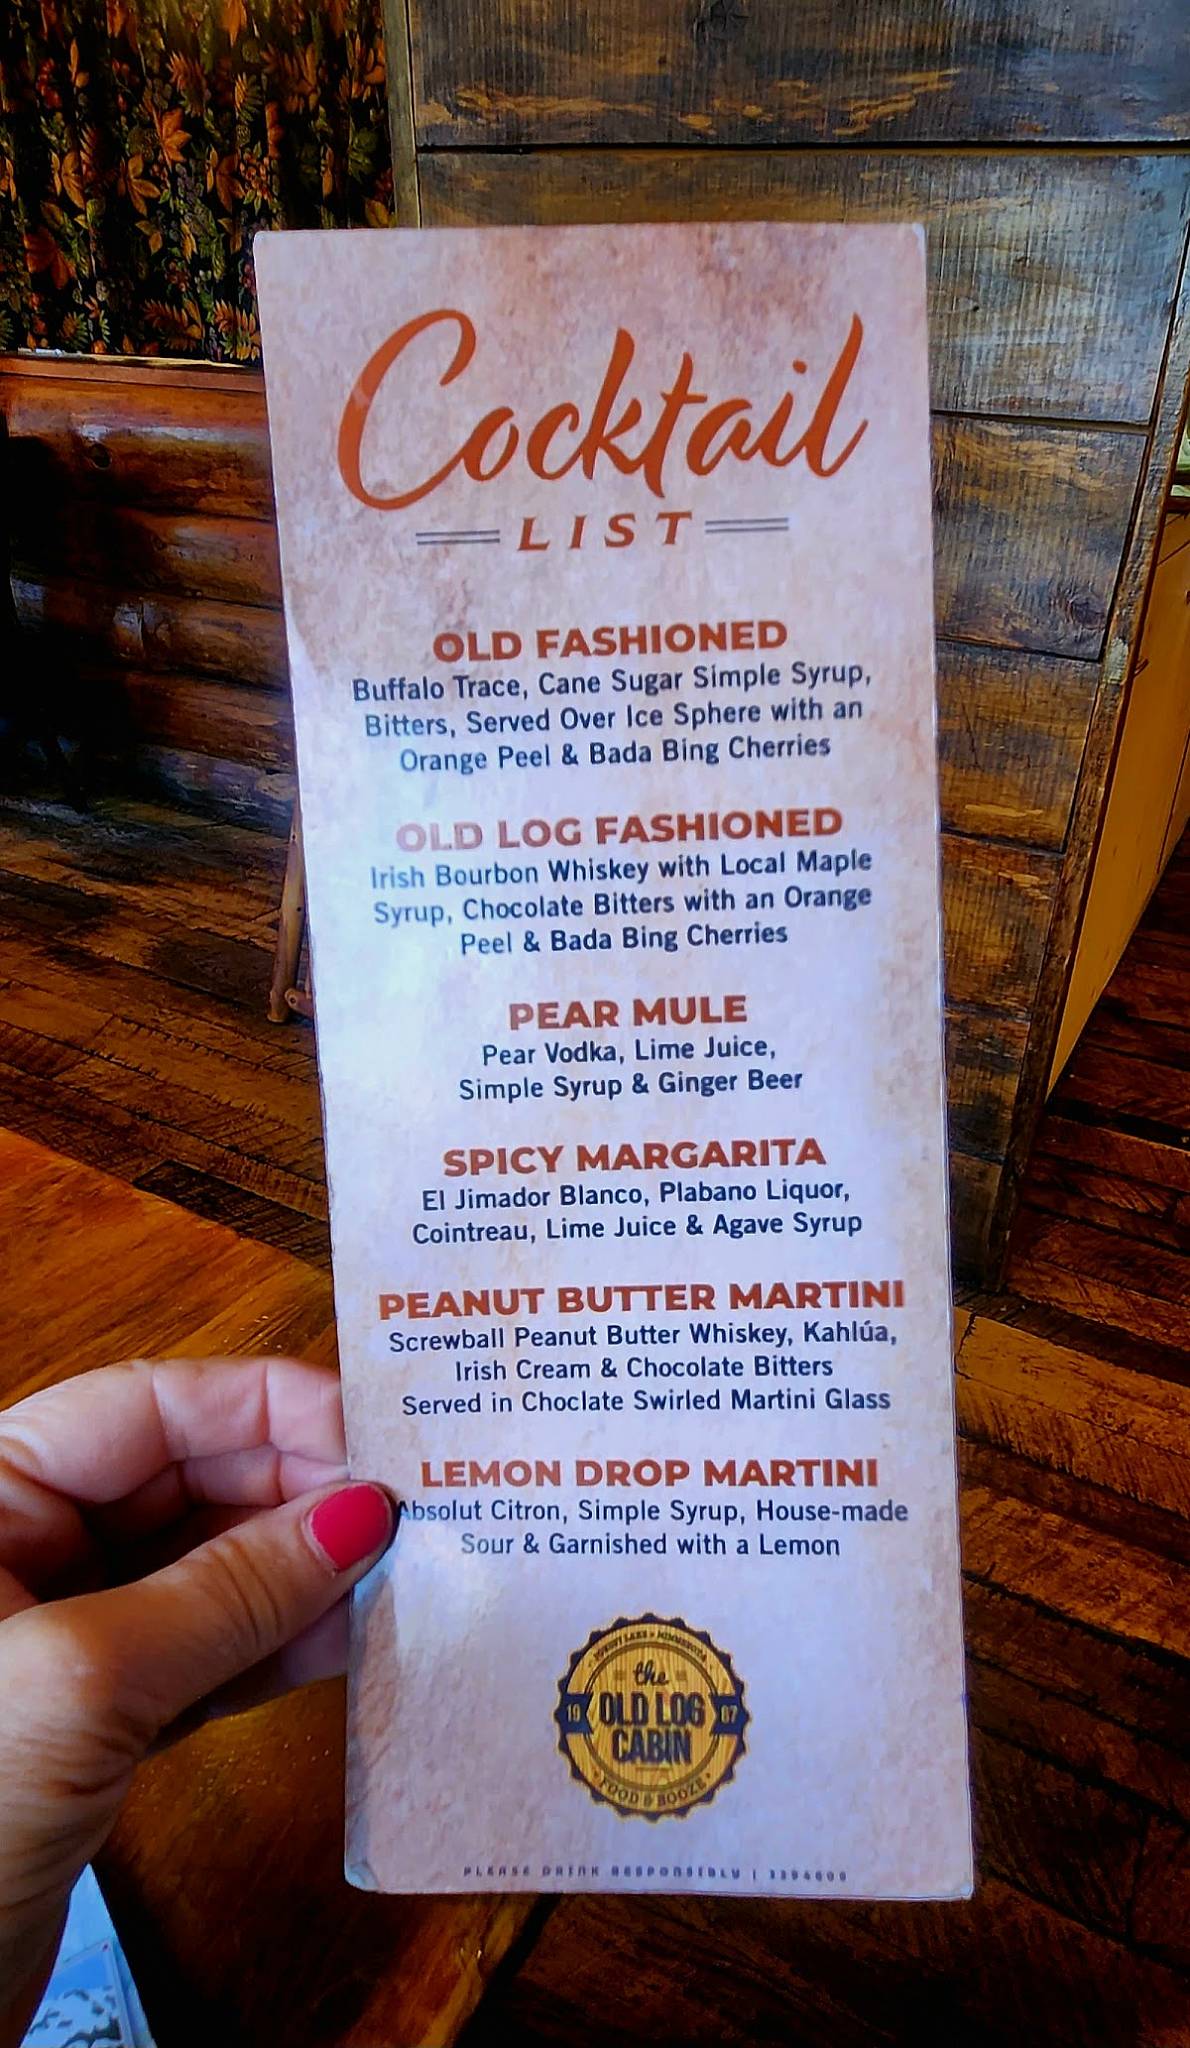 Cocktail
LIST
OLD FASHIONED
Buffalo Trace, Cane Sugar Simple Syrup,
Bitters, Served Over Ice Sphere with an
Orange Peel & Bada Bing Cherries
OLD LOG FASHIONED
Irish Bourbon Whiskey with Local Maple
Syrup, Chocolate Bitters with an Orange
Peel & Bada Bing Cherries
PEAR MULE
Pear Vodka, Lime Juice,
Simple Syrup & Ginger Beer
SPICY MARGARITA
El Jimador Blanco, Plabano Liquor,
Cointreau, Lime Juice & Agave Syrup
PEANUT BUTTER MARTINI
Screwball Peanut Butter Whiskey, Kahlúa,
Irish Cream & Chocolate Bitters
Served in Choclate Swirled Martini Glass
LEMON DROP MARTINI
Absolut Citron, Simple Syrup, House-made
Sour & Garnished with a Lemon
LAKE • MINNESOTA
the
19 OLD LOG 67
CABIN
FOOD & BOOZE
PLEASE DRINK RESPONSIBLY |